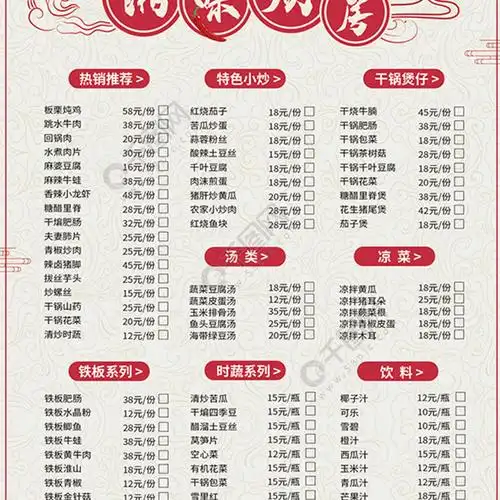 湘味厨房
热销推荐 >
板栗炖鸡 58元/份
跳水牛肉 38元/份
回锅肉 20元/份
水煮肉片 30元/份
麻婆豆腐 16元/份
麻辣牛蛙 38元/份
香辣小龙虾 48元/份
糖醋里脊 28元/份
干煸肥肠 32元/份
夫妻肺片 32元/份
青椒炒肉 25元/份
辣卤猪脚 45元/份
拔丝芋头 25元/份
炒螺丝 15元/份
干锅山药 25元/份
干锅花菜 20元/份
清炒时蔬 12元/份
特色小炒 >
红烧茄子 18元/份
苦瓜炒蛋 18元/份
蒜蓉粉丝 18元/份
酸辣土豆丝 18元/份
千叶豆腐 18元/份
肉沫煎蛋 18元/份
猪肝炒黄瓜 20元/份
农家小炒肉 28元/份
红烧鱼块 28元/份
干锅煲仔 >
干烧牛腩 45元/份
干锅肥肠 38元/份
干锅包菜 18元/份
干锅茶树菇 28元/份
干锅千叶豆腐 18元/份
干锅花菜 20元/份
糖醋里脊煲 38元/份
花生猪尾煲 42元/份
茄子煲 18元/份
汤 类 >
蔬菜豆腐汤 18元/份
蔬菜皮蛋汤 12元/份
玉米排骨汤 35元/份
鱼头豆腐汤 25元/份
海带绿豆汤 20元/份
凉 菜 >
凉拌黄瓜 18元/份
凉拌猪耳朵 25元/份
凉拌蕨菜根 18元/份
凉拌青椒皮蛋 18元/份
凉拌木耳 18元/份
铁板系列 >
铁板肥肠 38元/份
铁板水晶粉 12元/份
铁板鲫鱼 28元/份
铁板牛蛙 38元/份
铁板黄牛肉 38元/份
铁板淮山 18元/份
铁板青椒 12元/份
铁板金针菇 18元/份
时蔬系列 >
清炒苦瓜 15元/瓶
干煸四季豆 15元/瓶
醋溜土豆丝 15元/瓶
莴笋片 15元/瓶
空心菜 12元/瓶
有机花菜 15元/瓶
干锅包菜 15元/瓶
雪里红 15元/瓶
饮 料 >
椰子汁 12元/瓶
可乐 10元/瓶
雪碧 10元/瓶
橙汁 10元/瓶
西瓜汁 12元/瓶
玉米汁 12元/瓶
青瓜汁 12元/瓶
芒果汁 18元/瓶